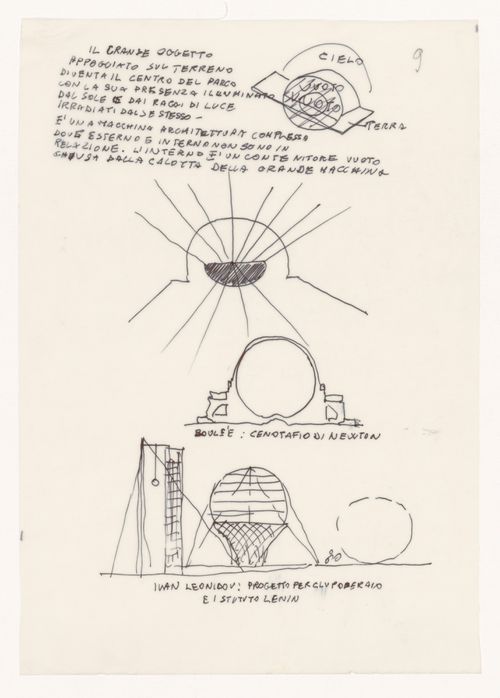 9
IL GRANDE OGGETTO
APPOGGIATO SUL TERRENO
DIVENTA IL CENTRO DEL PARCO
CON LA SUA PRESENZA ILLUMINATO
DAL SOLE E DAI RAGGI DI LUCE
IRRADIATI DAL SE STESSO –
E' UNA MACCHINA ARCHITETTURA COMPLESSA
DOVE ESTERNO E INTERNO NON SONO IN
RELAZIONE. L'INTERNO E' UN CONTENITORE VUOTO
CHIUSA DALLA CALOTTA DELLA GRANDE MACCHINA
CIELO
VUOTO
VUOTO
TERRA
BOULÉE : CENOTAFIO DI NEWTON
IVAN LEONIDOV : PROGETTO PER CLUP OPERAIO
E ISTITUTO LENIN